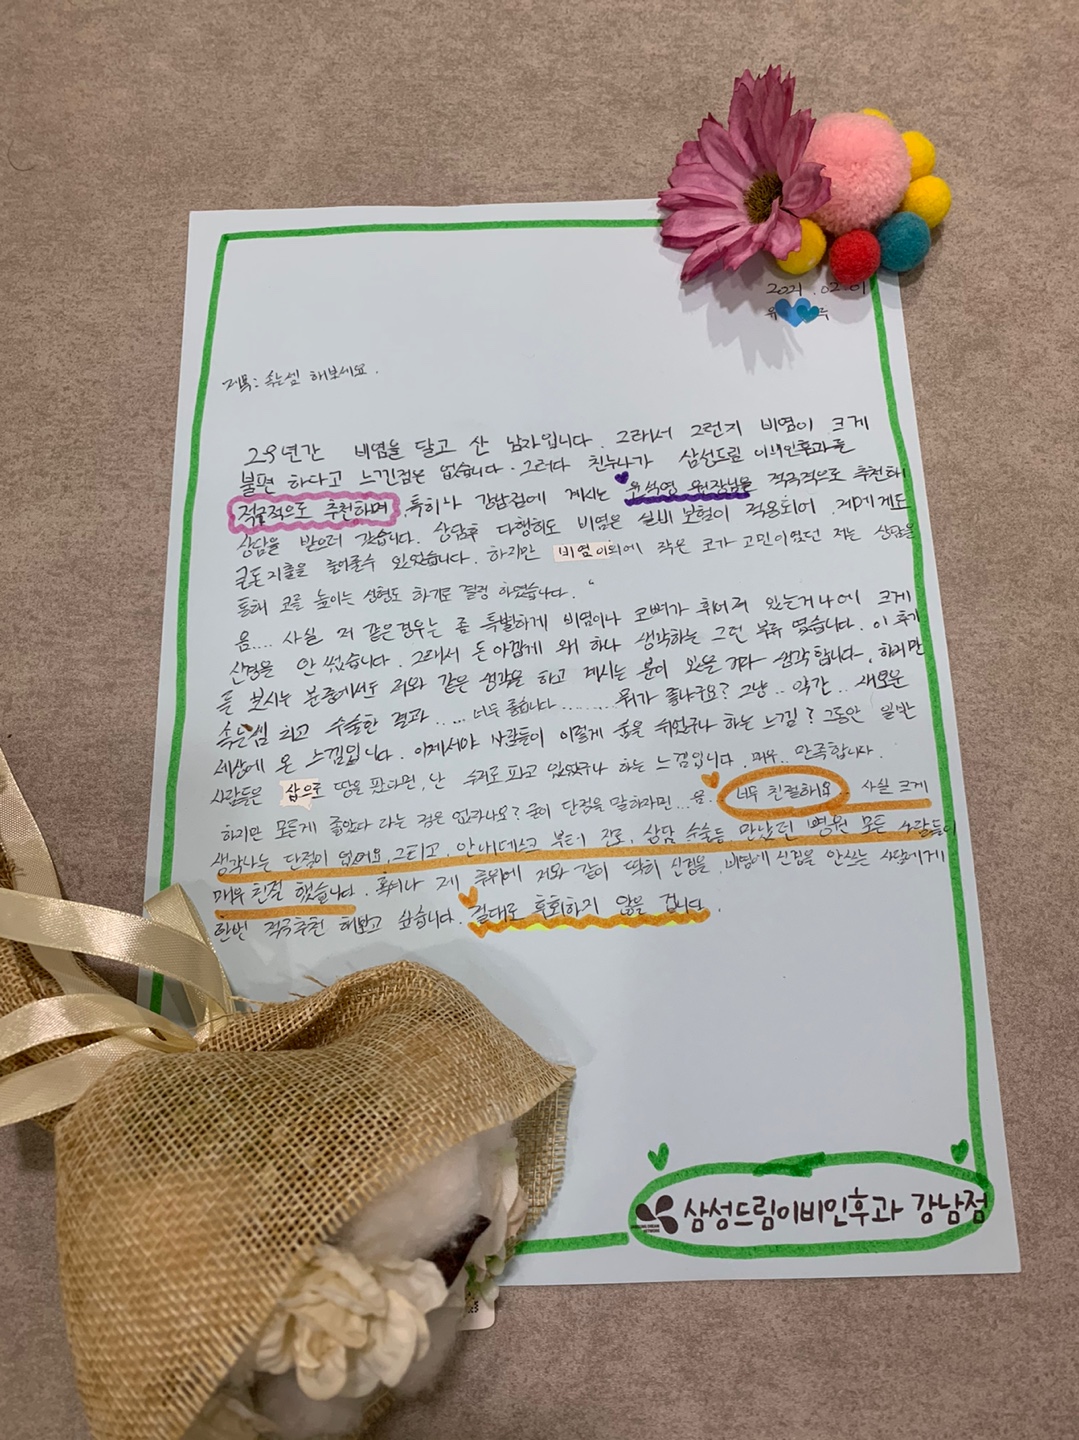 2021.02.01
유
제목: 속는셈 해보세요.
29년간 비염을 달고 산 남자입니다. 그래서 그런지 비염이 크게
불편 하다고 느낀점은 없습니다. 그러다 친누나가 삼성드림 이비인후과를
적극적으로 추천하며, 특히나 강남점에 계시는 윤석영 원장님을 적극적으로 추천하여
상담을 받으러 갔습니다. 상담후 다행히도 비염은 실비 보험이 적용되어, 제게도
큰돈 지출을 줄여줄수 있었습니다. 하지만 비염 이외에 작은 코가 고민이였던 저는 상담을
통해 코를 높이는 성형도 하기로 결정 하였습니다.
음.... 사실 저 같은경우는 좀 특별하게 비염이나 코뼈가 휘어져 있는거에 크게
신경을 안 썼습니다. 그래서 돈아깝게 왜 하나 생각하는 그런 부류 였습니다. 이 후기
를 보시는 분중에서도 저와 같은 생각을 하고 계시는 분이 있을거라 생각합니다. 하지만
속는셈 치고 수술한 결과..... 너무 좋습니다........ 뭐가 좋냐구요? 그냥.. 약간.. 새로운
세상에 온 느낌입니다. 이제서야 사람들이 이렇게 숨을 쉬었구나 하는 느낌? 그동안 일반
사람들은 삽으로 땅을 팠다면, 난 수저로 파고 있었구나 하는 느낌입니다. 매우.. 만족합니다.
하지만 모든게 좋았다 라는 점은 없잖아요? 굳이 단점을 말하자면... 음.. 너무 친절해요... 사실 크게
생각나는 단점이 없어요. 그리고, 안내데스크 부터 진료, 상담 수술등 만났던 병원 모든 사람들이
매우 친절 했습니다. 혹시나 제 후위에 저와 같이 딱히 신경을, 비염에 신경을 안쓰는 사람에게
한번 적극추천 해보고 싶습니다. 절대로 후회하지 않을 겁니다.
삼성드림이비인후과 강남점